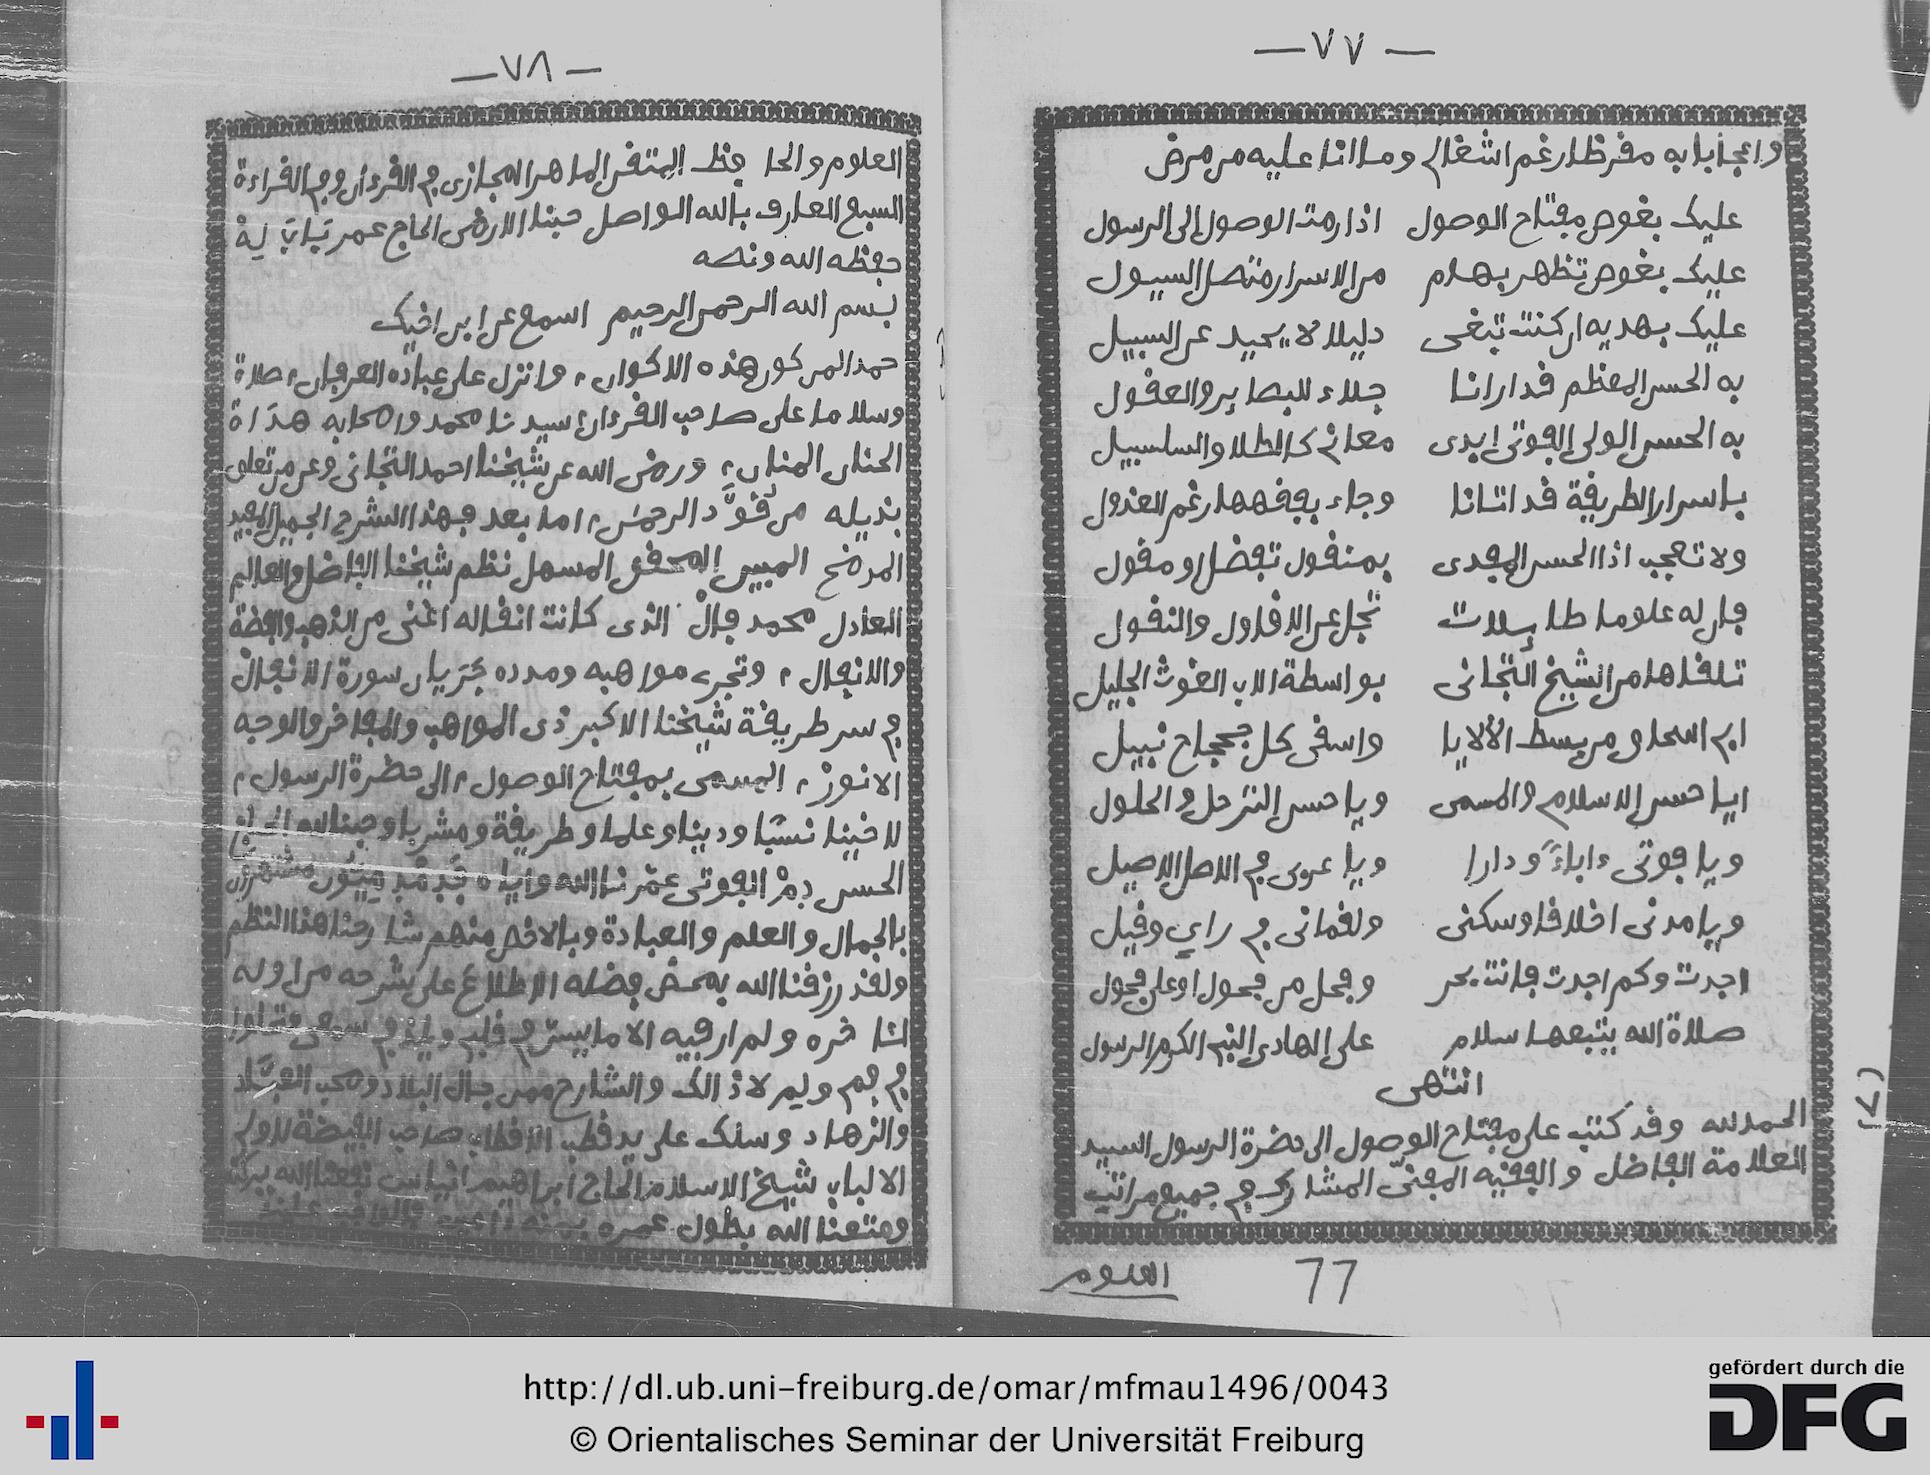 — ٧٧ —
واعجابا به مقرظا رغم اشغالى وما انا عليه من مرض
عليك بغوص مفتاح الوصول اذا رمت الوصول الى الرسول
عليك بغوص تظهر بهام من الاسرار متصل السيول
عليك بهديه ان كنت تبغى دليلا لا يحيد عن السبيل
به الحسن المعظم قد ارانا جلاء للبصاير والعقول
به الحسن الولى الفوتى ابدى معانى كالطلا والسلسبيل
باسرار الطريقة قد اتانا وجاء بفقهها رغم العذول
ولا تعجب اذا الحسن المفدى بمنقول تفضل او مقول
فان له علوما طايلات تجل عن الاقاول والنقول
تلقاها من الشيخ التجانى بواسطة الاب الغوث الجليل
ابى اسحاق من بسط الألايا واسقى كل جحجاح نبيل
ايا حسن الاسلام والمسمى ويا حسن الترحل والحلول
ويا فوتى ءاباءً ودارا ويا عربى فى الاصل الاصيل
ويا مدنى اخلاقا وسكنى ولقمانى فى راي وقيل
اجدت وكم اجدت فانت بحر وفحل من فحول او على فحول
صلاة الله يتبعها سلام على الهادى النبى الكرم الرسول
انتهى
الحمد لله وقد كتب على مفتاح الوصول الى حضرة الرسول السيد
العلامة الفاضل والفقيه المفتى المشارك فى جميع مراتب
العلوم
77
— ٧٨ —
العلوم والحافظ المتقن الماهر المجازى فى القرءان وفى القراءة
السبع العارف بالله الواصل حبنا الارضى الحاج عمر
حفظه الله ونصه
بسم الله الرحمن الرحيم اسمع عن ابن اخيك
حمدا لمن كور هذه الاكوان، وانزل على عباده العرفان، صلاة
وسلاما على صاحب القرءان سيدنا محمد واصحابه هداة
الحنان المنان، ورضى الله عن شيخنا احمد التجانى وعن من تعلق
بذيله من الرحمن، اما بعد فهذا الشرح الجميل المفيد
الموضح المبين المحقق المسهل نظم شيخنا الفاضل والعالم
العادل محمد فالْ الذى كانت انقاله اغنى من الذهب والفضة
والانفال، وتجرى مواهبه ومدده جريان سورة الانفالْ
فى سر طريقة شيخنا الاكبر ذى المواهب والمفاخر والوجه
الانورْ، المسمى بمفتاح الوصول، الى حضرة الرسول،
لاخينا نسبًا ودينا وعلما وطريقة ومشربا وحبنا
الحسن الفوتى عمّرنا الله واياه
بالجمال والعلم والعبادة وبالاخص منهم شارحنا هذا النظم
ولقد رزقنا الله بمحض فضله الاطلاع على شرحه من اوله
لئاخره ولم ار فيه الا ما
والشارح ممن جال البلاد وصحب العبّاد
والزهاد وسلك على يد قطب الاقطاب صاحب الفيضة لاولى
الالباب شيخ الاسلام الحاج ابراهيم انياس نفعنا الله ببركته
ومتعنا الله بطول عمره
http://dl.ub.uni-freiburg.de/omar/mfmau1496/0043
© Orientalisches Seminar der Universität Freiburg
gefördert durch die
DFG